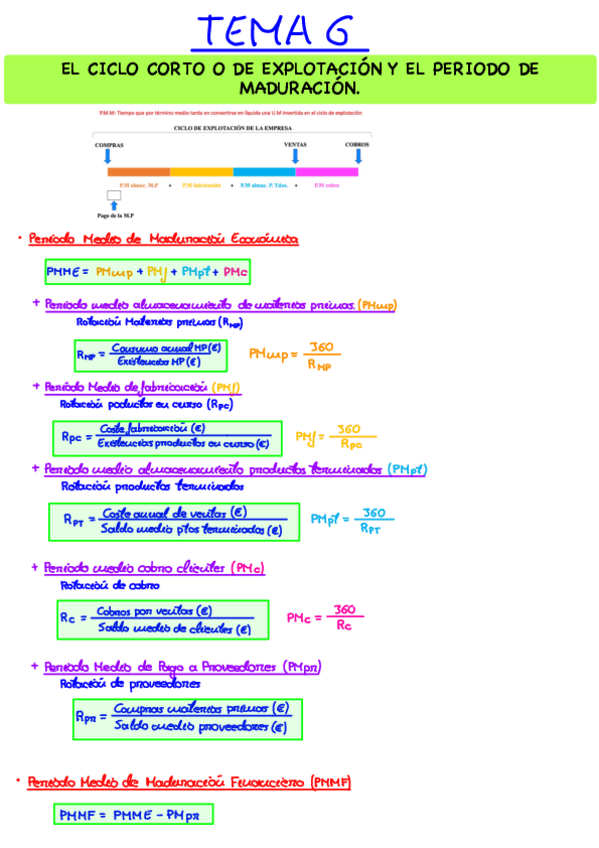 TEMA 6
EL CICLO CORTO O DE EXPLOTACIÓN Y EL PERIODO DE
MADURACIÓN.
P.M.M: Tiempo que por término medio tarda en convertirse en líquida una U.M invertida en el ciclo de explotación
CICLO DE EXPLOTACIÓN DE LA EMPRESA
COMPRAS VENTAS COBROS
P.M almac. M.P + P.M fabricación + P.M almac. P. Tdos. + P.M cobro
Pago de la M.P
• Periodo Medio de Maduración Económica
PMME = PMmp + PMf + PMpt + PMc
+ Periodo medio almacenamiento de materias primas (PMmp)
Rotación Materias primas (RMP)
RMP = Consumo anual MP (€) / Existencias MP (€) PMmp = 360 / RMP
+ Periodo Medio de fabricación (PMf)
Rotación poductos en curso (Rpc)
Rpc = Coste fabricación (€) / Existencias productos en curso (€) PMf = 360 / Rpc
+ Periodo medio almacenamiento productos terminados (PMpt)
Rotación productos terminados
RPT = Coste anual de ventas (€) / Saldo medio ptos terminados (€) PMpt = 360 / RPT
+ Periodo medio cobro clientes (PMc)
Rotación de cobro
Rc = Cobros por ventas (€) / Saldo medio de clientes (€) PMc = 360 / Rc
+ Periodo Medio de Pago a Proveedores (PMpr)
Rotación de proveedores
Rpr = Compras materias primas (€) / Saldo medio proveedores (€)
• Periodo Medio de Maduración Financiero (PMMF)
PMMF = PMME - PMpr